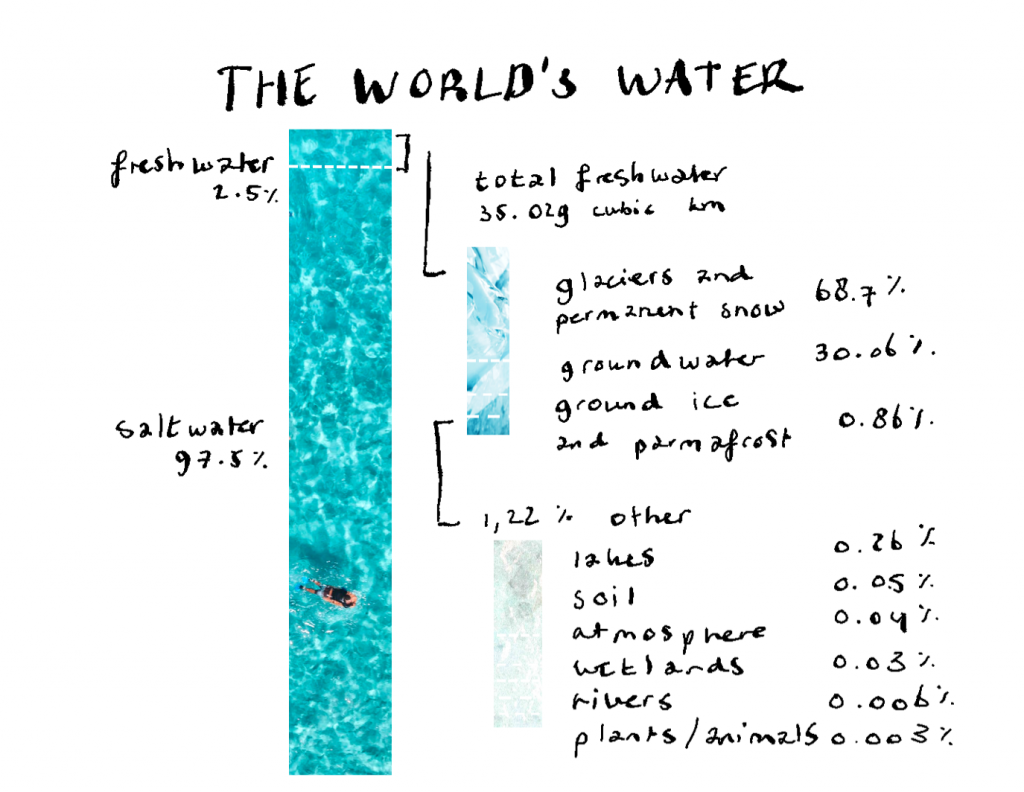 THE WORLD'S WATER
freshwater
2.5%
total freshwater
35.029 cubic km
glaciers and
permanent snow 68.7%
groundwater 30.06%.
ground ice
and parmafrost 0.86%.
saltwater
97.5%
1,22 % other
lakes 0.26 %
soil 0.05 %
atmosphere 0.04%.
wetlands 0.03 %
rivers 0.006%.
plants/animals 0.003%